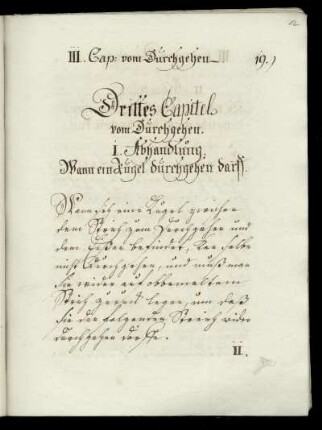 III. Cap: vom Dürchgehen
19.)
Drittes Capitel
vom Dürchgehen.
I. Abhandlung.
Wann ein Kugel dürchgehen darff.
Wann sich eine Kugel zwischen
dem Strich zum Durchgehen und
dem befindet, kan selbe
nicht durchgehen, und muß man
sie wider auf obbemeltem
Strich legen, um daß
sie den folgenden Streich wider
durchgehen dörffe.
II.